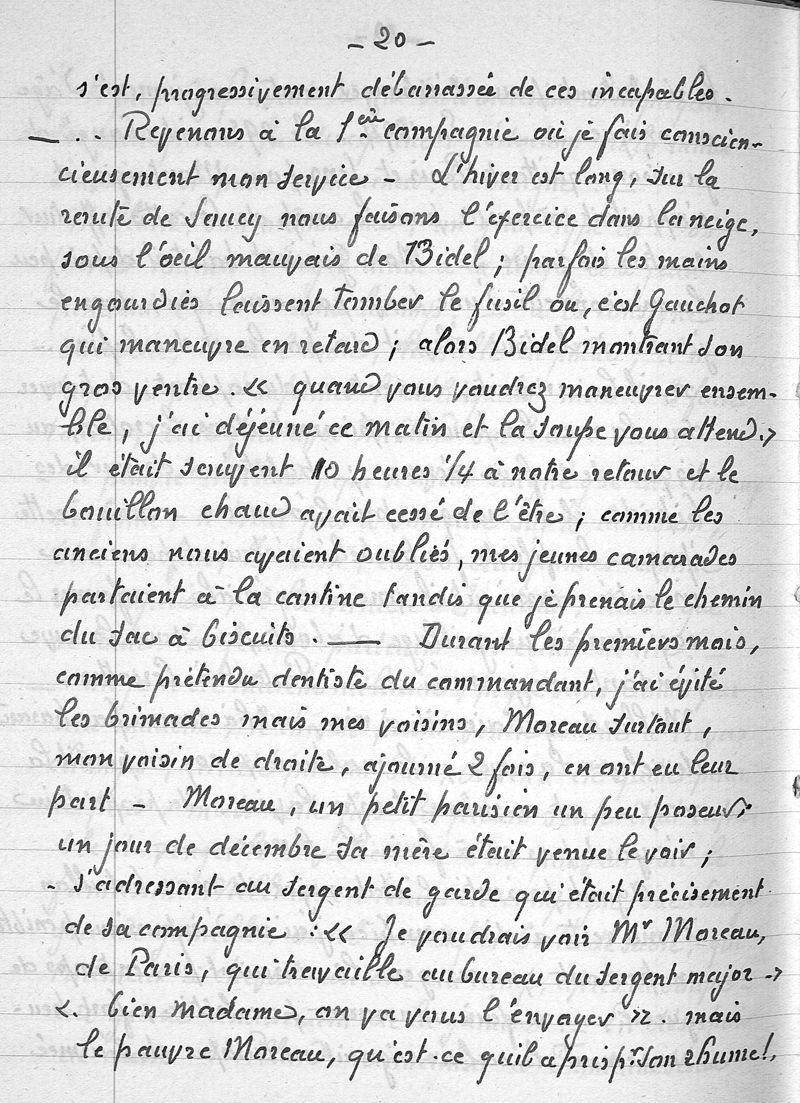 - 20 -
s'est, progressivement débarrassée de ces incapables.
— .. Revenons à la 1ère compagnie où je fais conscien-
cieusement mon service - L'hiver est long, sur la
route de Saucy nous faisons l'exercice dans la neige,
sous l'oeil mauvais de Bidel ; parfois les mains
engourdies laissent tomber le fusil ou, c'est Gauchot
qui maneuvre en retard ; alors Bidel montrant son
gros ventre. « quand vous voudrez maneuvrer ensem-
ble, j'ai déjeuné ce matin et la soupe vous attend. »
il était souvent 10 heures 1/4 à notre retour et le
bouillon chaud avait cessé de l'être ; comme les
anciens nous avaient oubliés, mes jeunes camarades
partaient à la cantine tandis que je prenais le chemin
du sac à biscuits. — Durant les premiers mois,
comme prétendu dentiste du commandant, j'ai évité
les brimades mais mes voisins, Moreau surtout,
mon voisin de droite, ajourné 2 fois, en ont eu leur
part - Moreau, un petit parisien un peu poseur.
un jour de décembre sa mère était venue le voir ;
- s'adressant au sergent de garde qui était précisement
de sa compagnie : « Je voudrais voir Mr Moreau,
de Paris, qui travaille au bureau du sergent major -»
«. bien madame, on va vous l'envoyer ». mais
le pauvre Moreau, qu'est-ce qu'il a pris pr son rhume!,